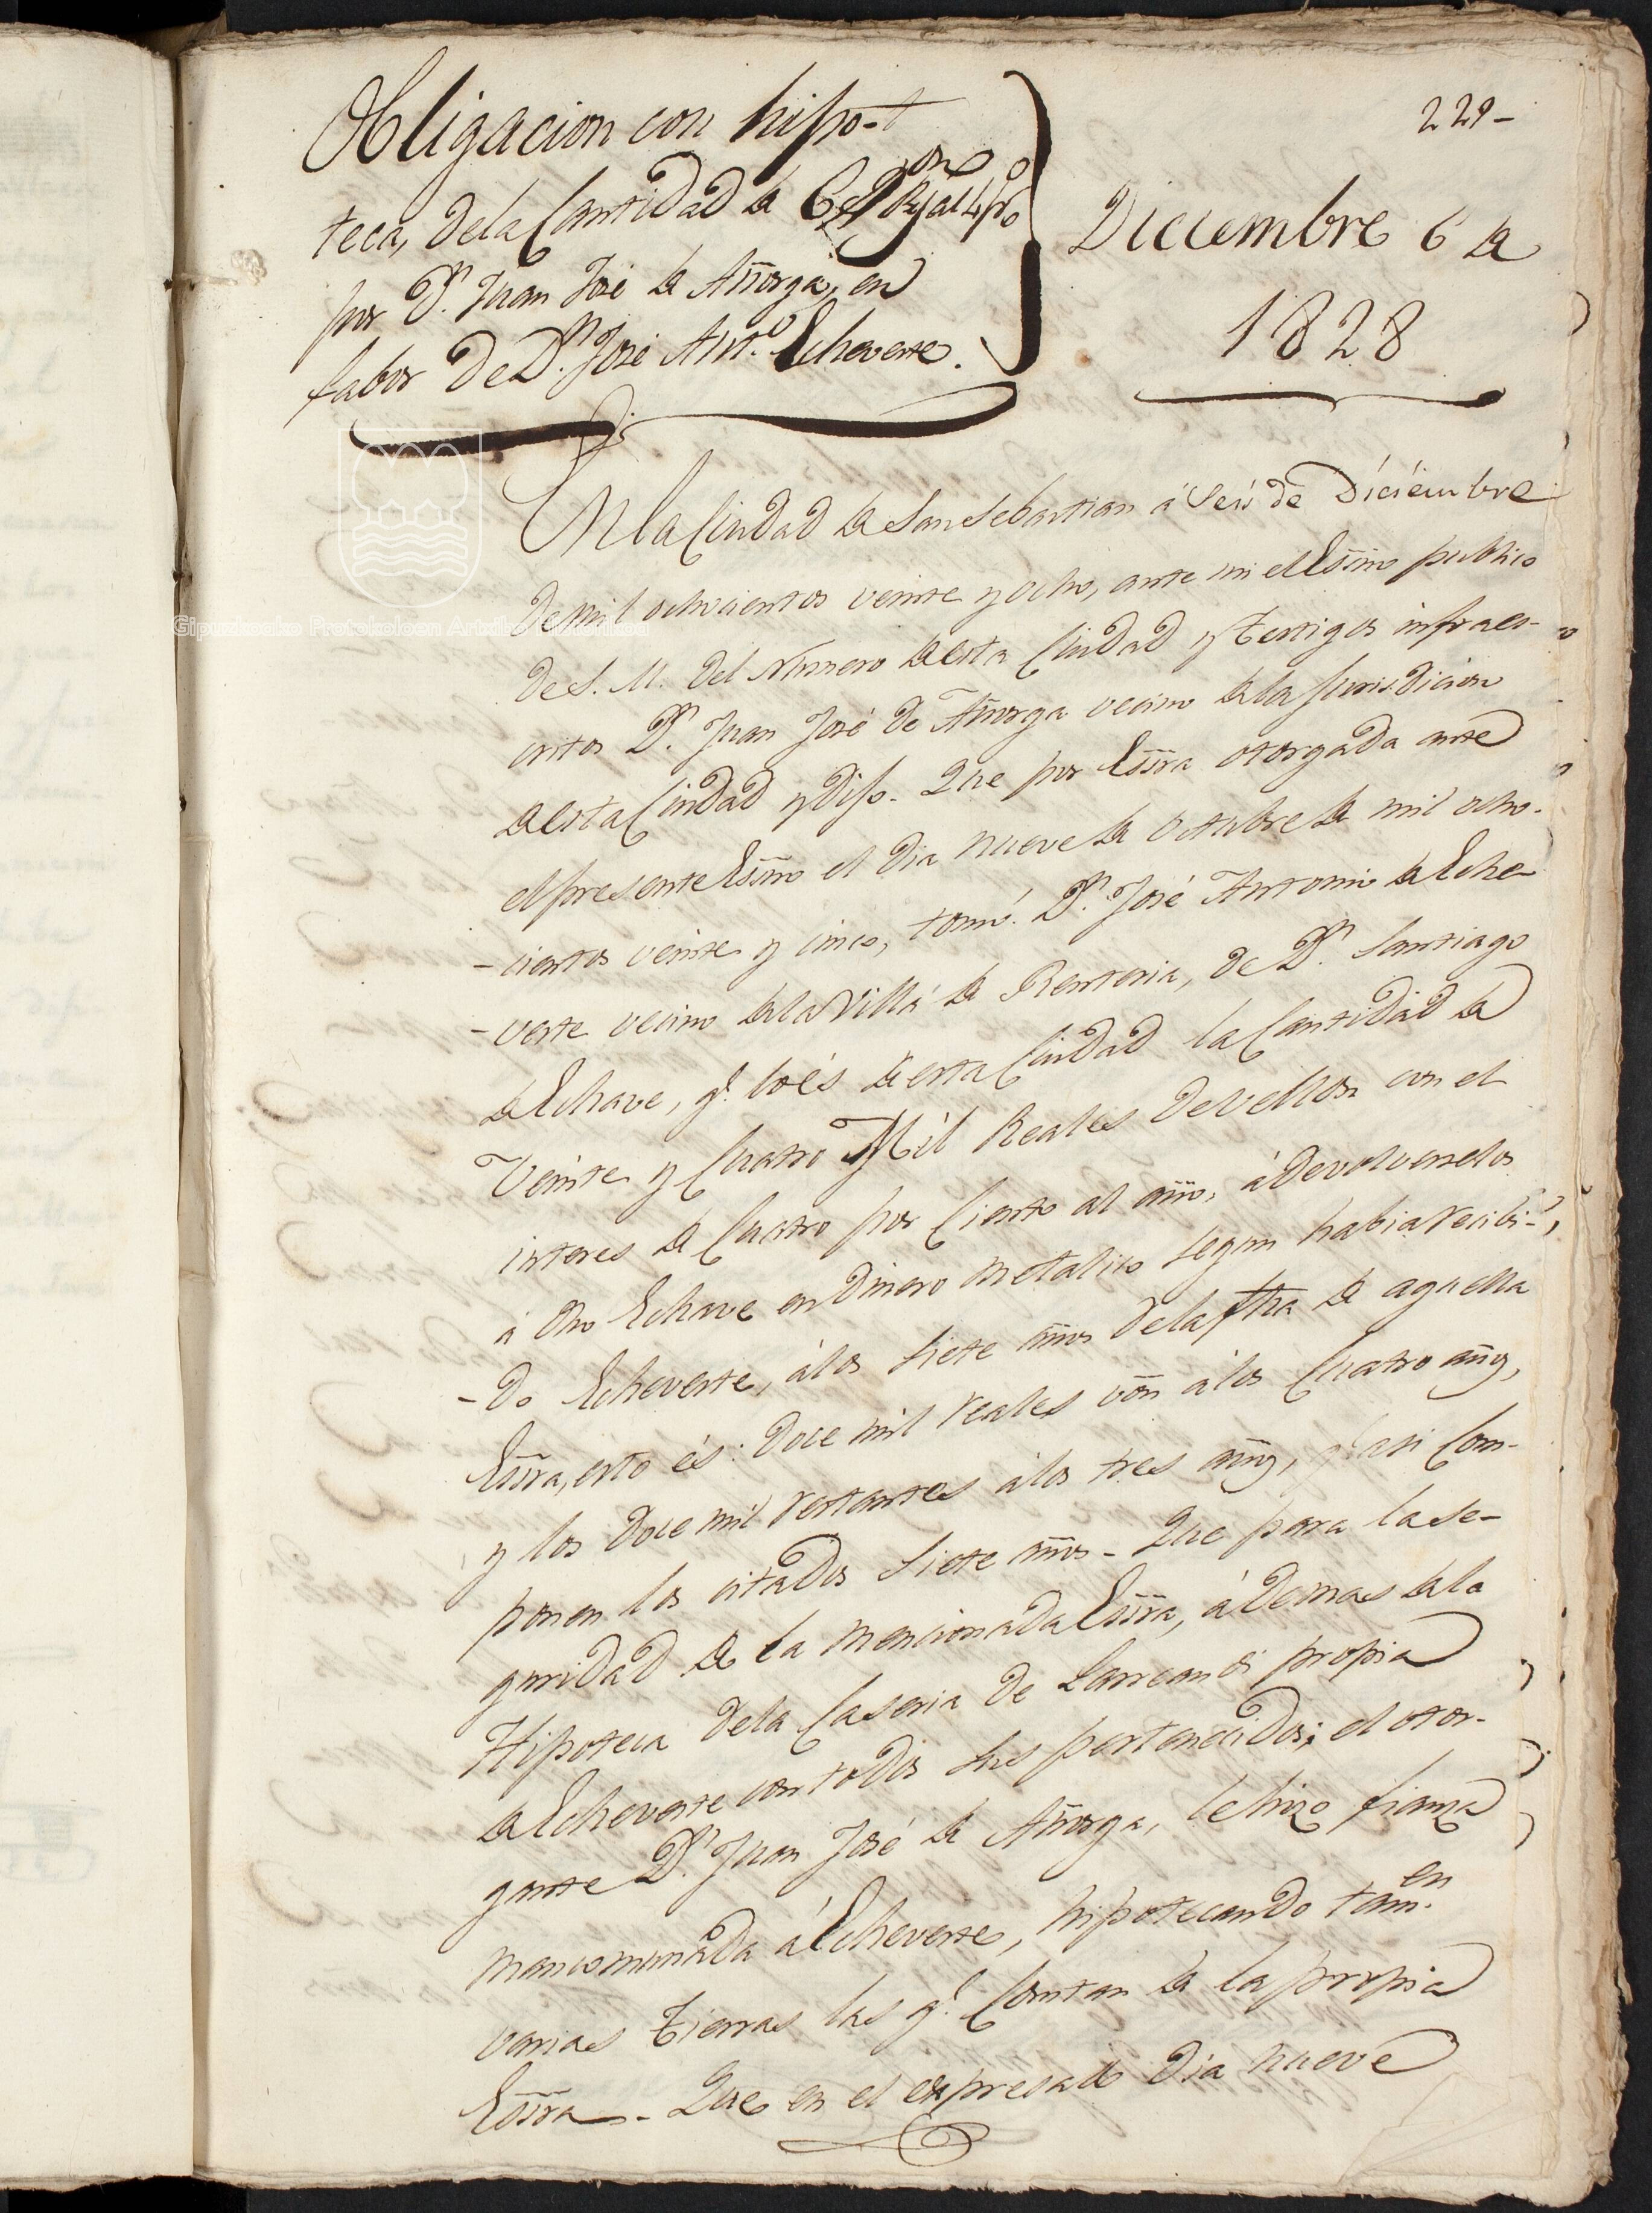 229-
Obligacion con hipo-
teca, dela Cantidad de al 4 p%
por Dn. Juan José de Añorga, en
fabor de Dn. José Anto. Echeverte.
Diciembre 6 de
1828
En la Ciudad de San Sebastian á Seis de Diciembre
de mil ochocientos veinte y ocho, ante mi el Essno publico
de S. M. del Numero de esta Ciudad y testigos infraes-
critos Dn. Juan José de Añorga vecino de la Jurisdicion
de esta Ciudad y dijo. Que por Essra otorgada ante
el presente Essno el dia nueve de Octubre de mil ocho-
-cientos veinte y cinco, tomó Dn. José Antonio de Eche-
-verte vecino de la Villa de Renteria, de Dn. Santiago
de Echave, qe. lo és de esta Ciudad la Cantidad de
Veinte y Cuatro Mil Reales de Vellon con el
interes de Cuatro por Ciento al año, á devolverselos
á dho Echave en dinero metalico segun habia recibi-
-do Echeverte, á los siete años de la fha de aquella
Essra, esto és: doce mil reales von á los Cuatro años,
y los doce mil restantes á los tres años, qe. asi Com-
ponen los citados siete años - Que para la se-
guridad de la mencionada Essra, á demas de la
Hipoteca dela Caseria de Larreandi propia
de Echeverte con todos sus pertenecidos; el otor-
gante Dn. Juan José de Añorga, le hizo fianza
mancomunada á Echeverte, hipotecando tamen.
varias tierras las qe. Constan de la propia
Essra - Que en el expresado dia nueve
Gipuzkoako Protokoloen Artxibo Historikoa